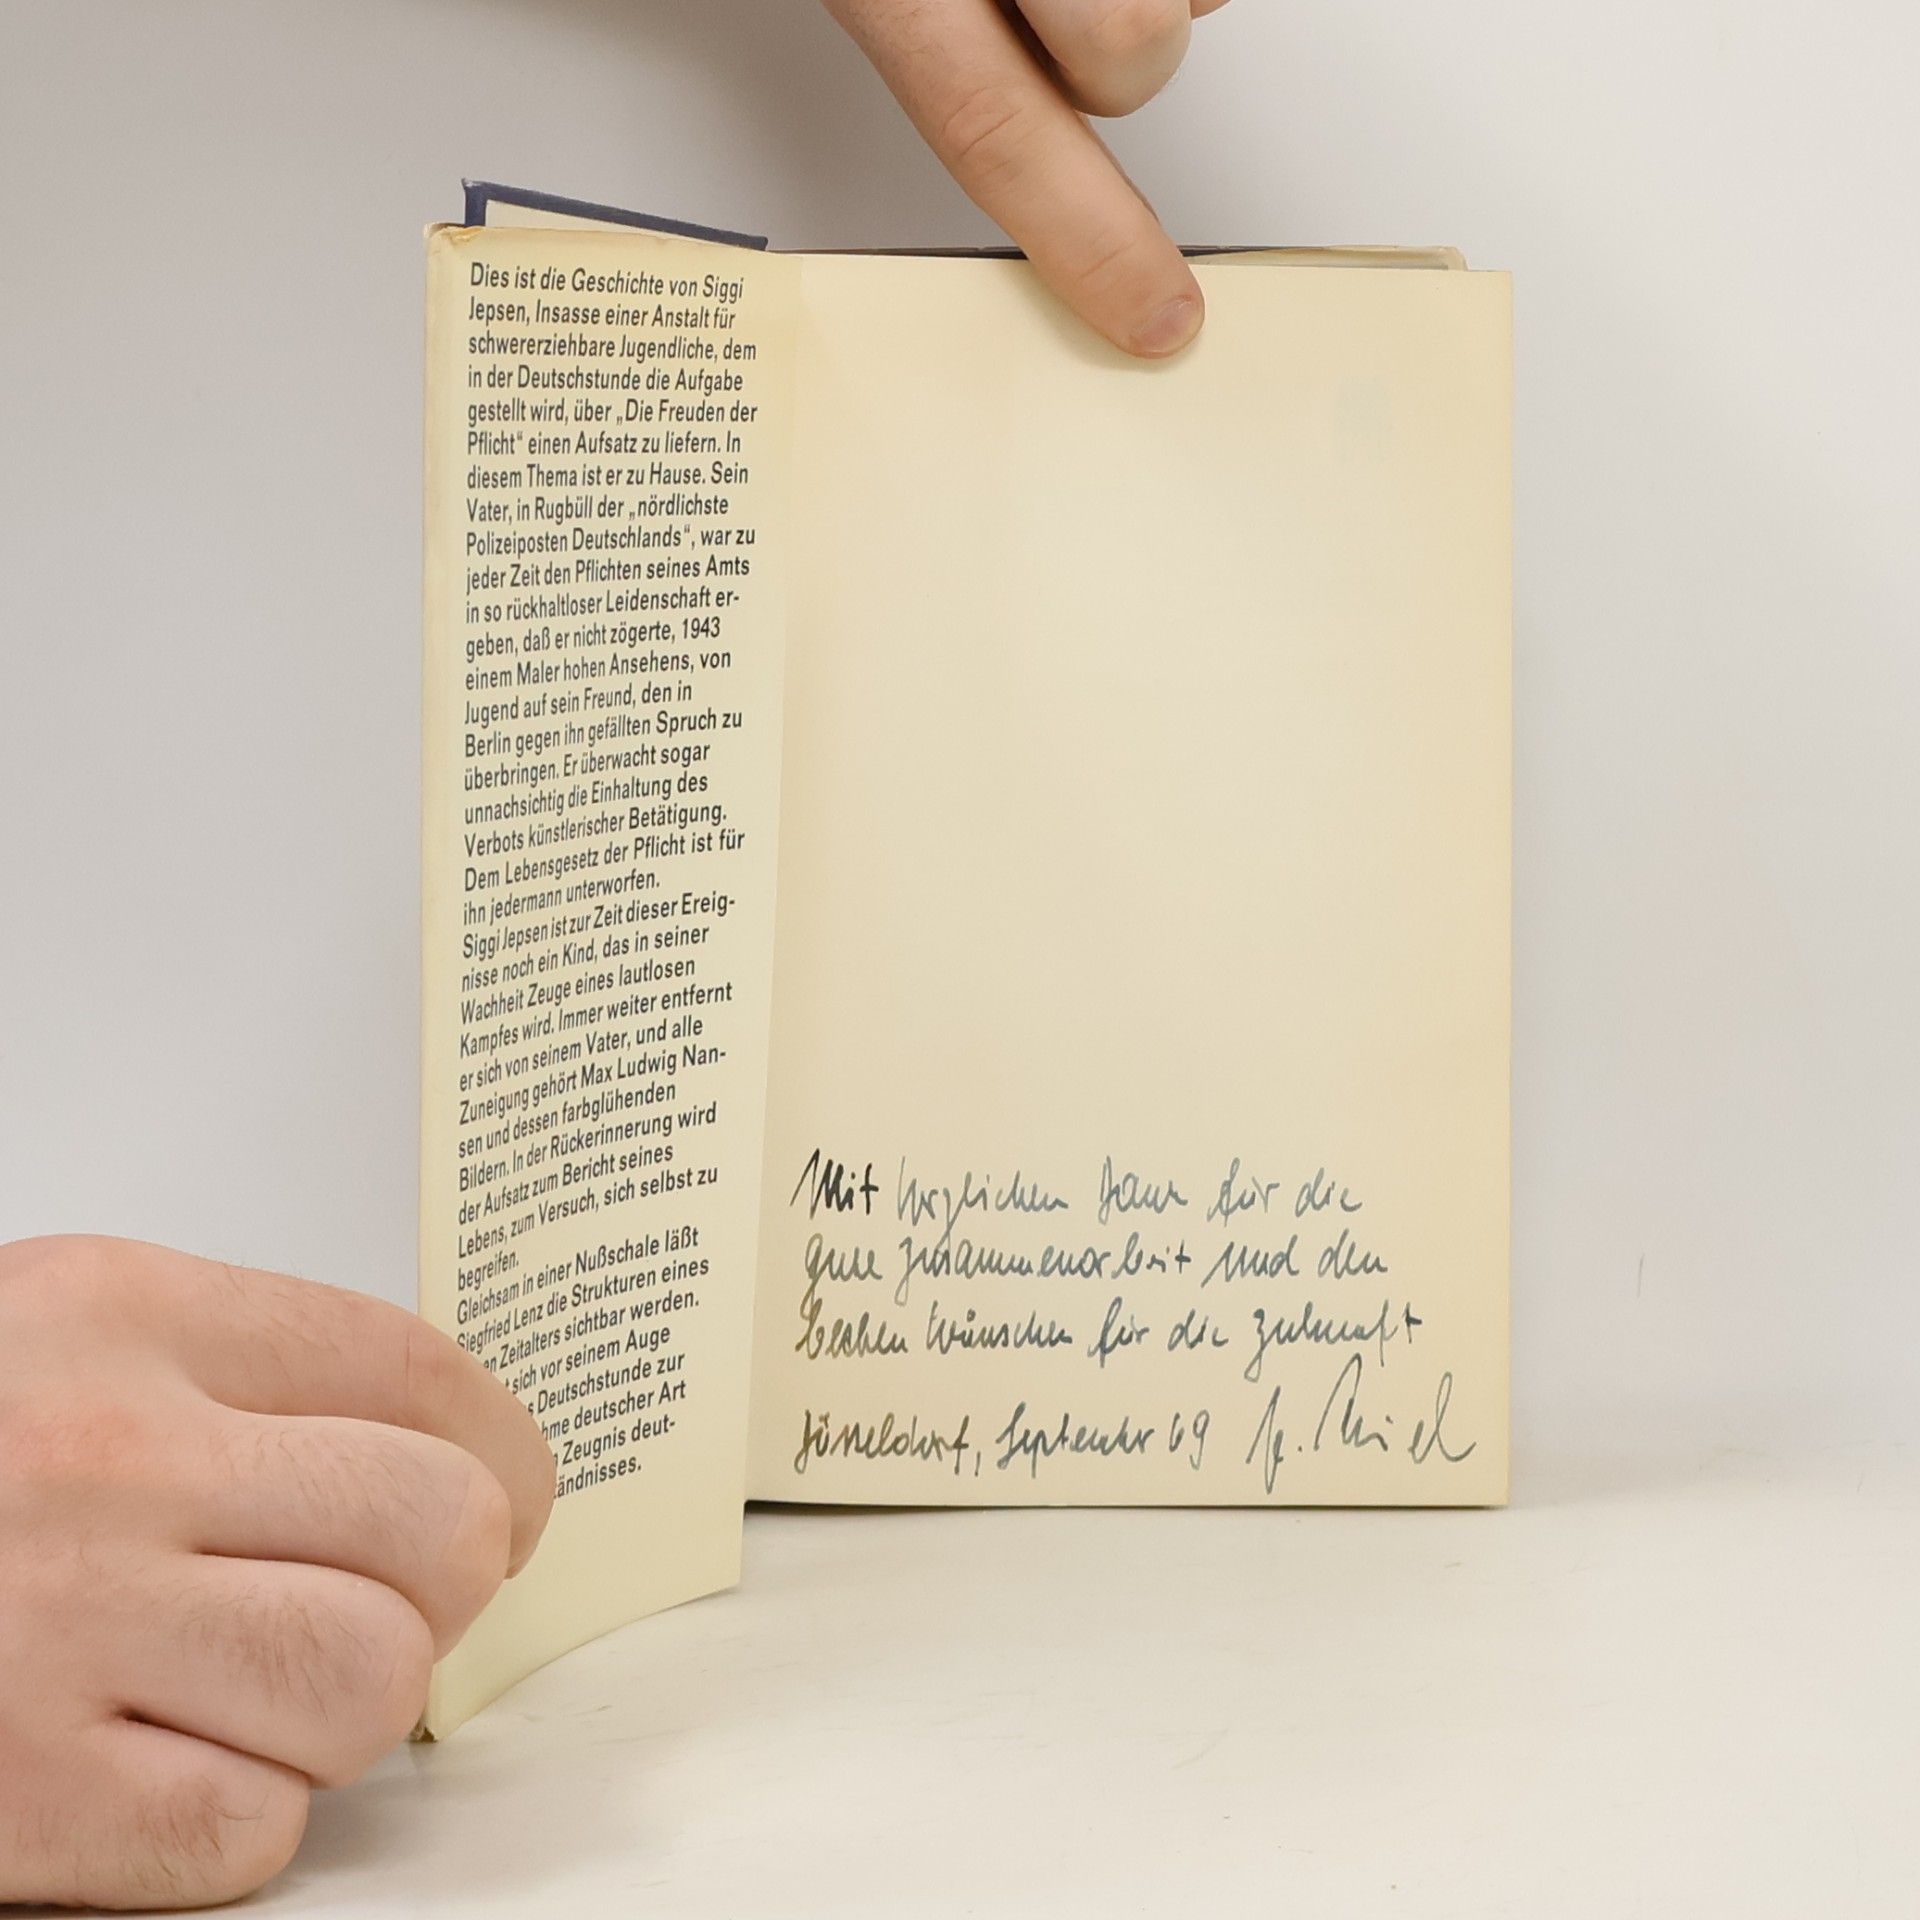 Dies ist die Geschichte von Siggi
Jepsen, Insasse einer Anstalt für
schwererziehbare Jugendliche, dem
in der Deutschstunde die Aufgabe
gestellt wird, über „Die Freuden der
Pflicht“ einen Aufsatz zu liefern. In
diesem Thema ist er zu Hause. Sein
Vater, in Rugbüll der „nördlichste
Polizeiposten Deutschlands“, war zu
jeder Zeit den Pflichten seines Amts
in so rückhaltloser Leidenschaft er-
geben, daß er nicht zögerte, 1943
einem Maler hohen Ansehens, von
Jugend auf sein Freund, den in
Berlin gegen ihn gefällten Spruch zu
überbringen. Er überwacht sogar
unnachsichtig die Einhaltung des
Verbots künstlerischer Betätigung.
Dem Lebensgesetz der Pflicht ist für
ihn jedermann unterworfen.
Siggi Jepsen ist zur Zeit dieser Ereig-
nisse noch ein Kind, das in seiner
Wachheit Zeuge eines lautlosen
Kampfes wird. Immer weiter entfernt
er sich von seinem Vater, und alle
Zuneigung gehört Max Ludwig Nan-
sen und dessen farbglühenden
Bildern. In der Rückerinnerung wird
der Aufsatz zum Bericht seines
Lebens, zum Versuch, sich selbst zu
begreifen.
Gleichsam in einer Nußschale läßt
Siegfried Lenz die Strukturen eines
en Zeitalters sichtbar werden.
t sich vor seinem Auge
s Deutschstunde zur
hme deutscher Art
Zeugnis deut-
tändnisses.
Mit herzlichen Dank für die
gute Zusammenarbeit und den
besten Wünschen für die Zukunft
Düsseldorf, September 69